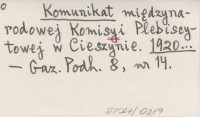 Komunikat międzyna-
rodowej Komisyi Plebiscy-
towej w Cieszynie. 1920...
— Gaz. Podh. 8, nr 14.